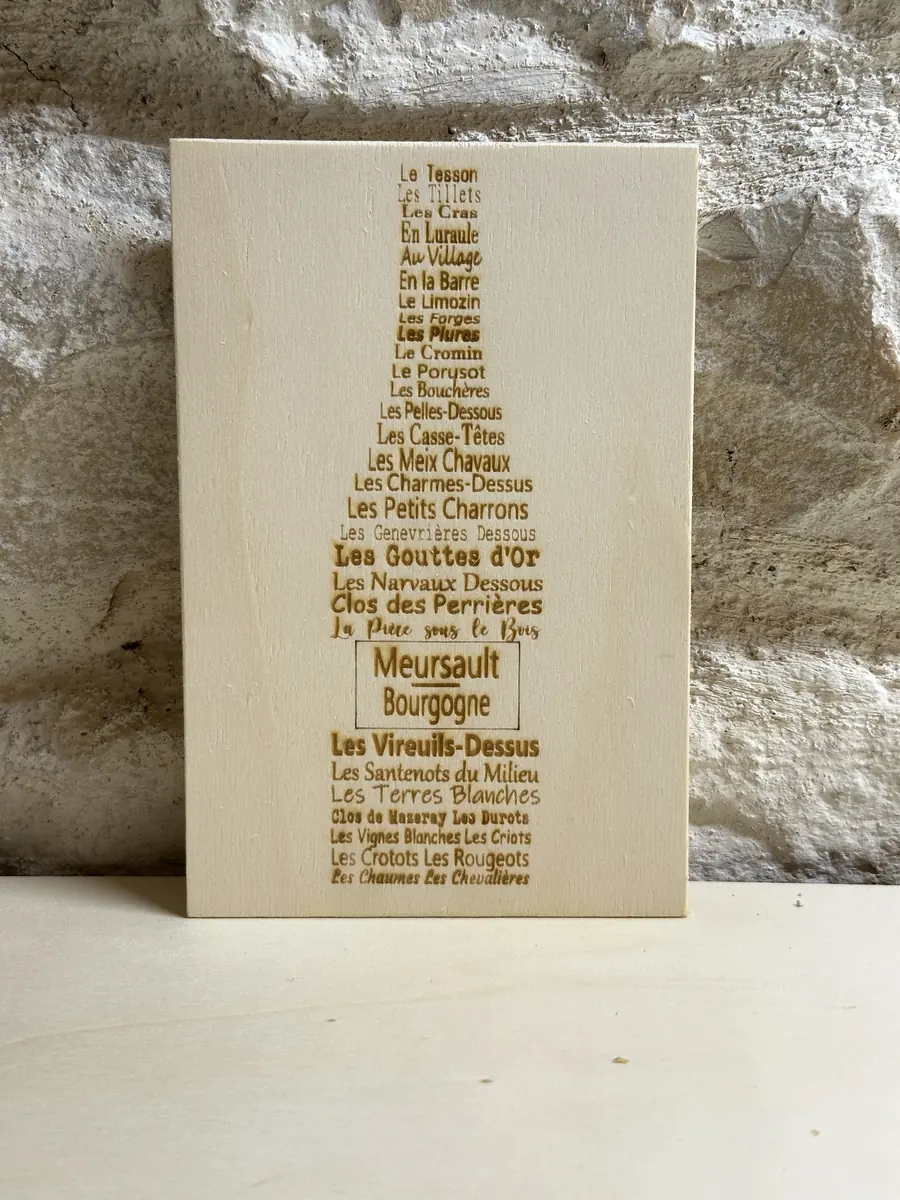 Le Tesson
Les Tillets
Les Cras
En Luraule
Au Village
En la Barre
Le Limozin
Les Forges
Les Plures
Le Cromin
Le Porusot
Les Bouchères
Les Pelles-Dessous
Les Casse-Têtes
Les Meix Chavaux
Les Charmes-Dessus
Les Petits Charrons
Les Genevrières Dessous
Les Gouttes d'Or
Les Narvaux Dessous
Clos des Perrières
La Pièce sous le Bois
Meursault
Bourgogne
Les Vireuils-Dessus
Les Santenots du Milieu
Les Terres Blanches
Clos de Mazeray Les Durots
Les Vignes Blanches Les Criots
Les Crotots Les Rougeots
Les Chaumes Les Chevalières